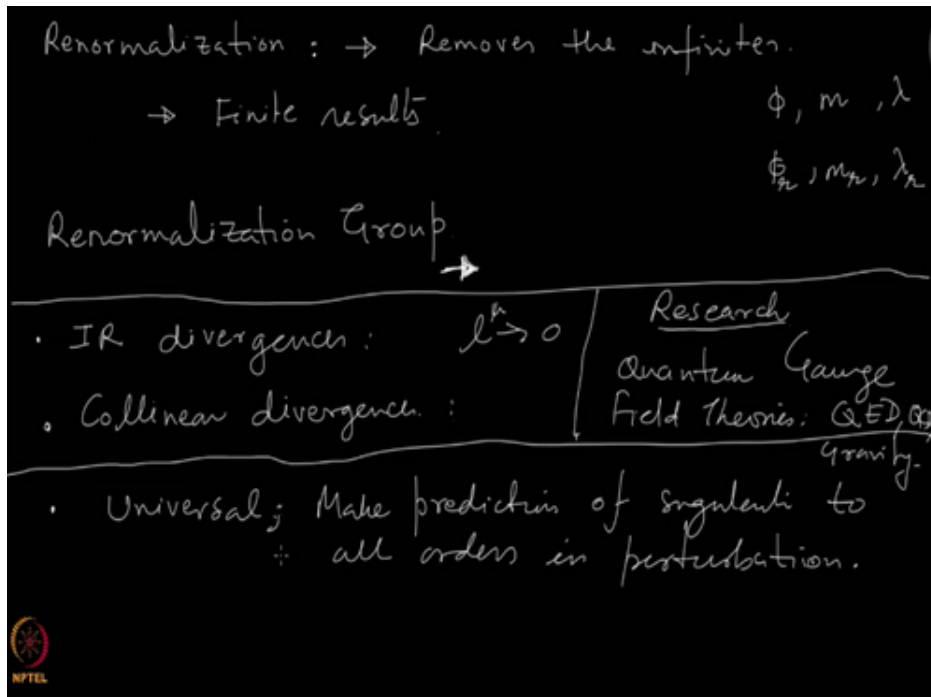 Renormalization : → Removes the infinites.
→ Finite results.
ϕ, m, λ
ϕ_r, m_r, λ_r
Renormalization Group.
→
• IR divergences : l^μ → 0
• Collinear divergences :
Research
Quantum Gauge
Field Theories: QED, QCD
Gravity.
• Universal; Make prediction of to
all orders in perturbation.
NPTEL